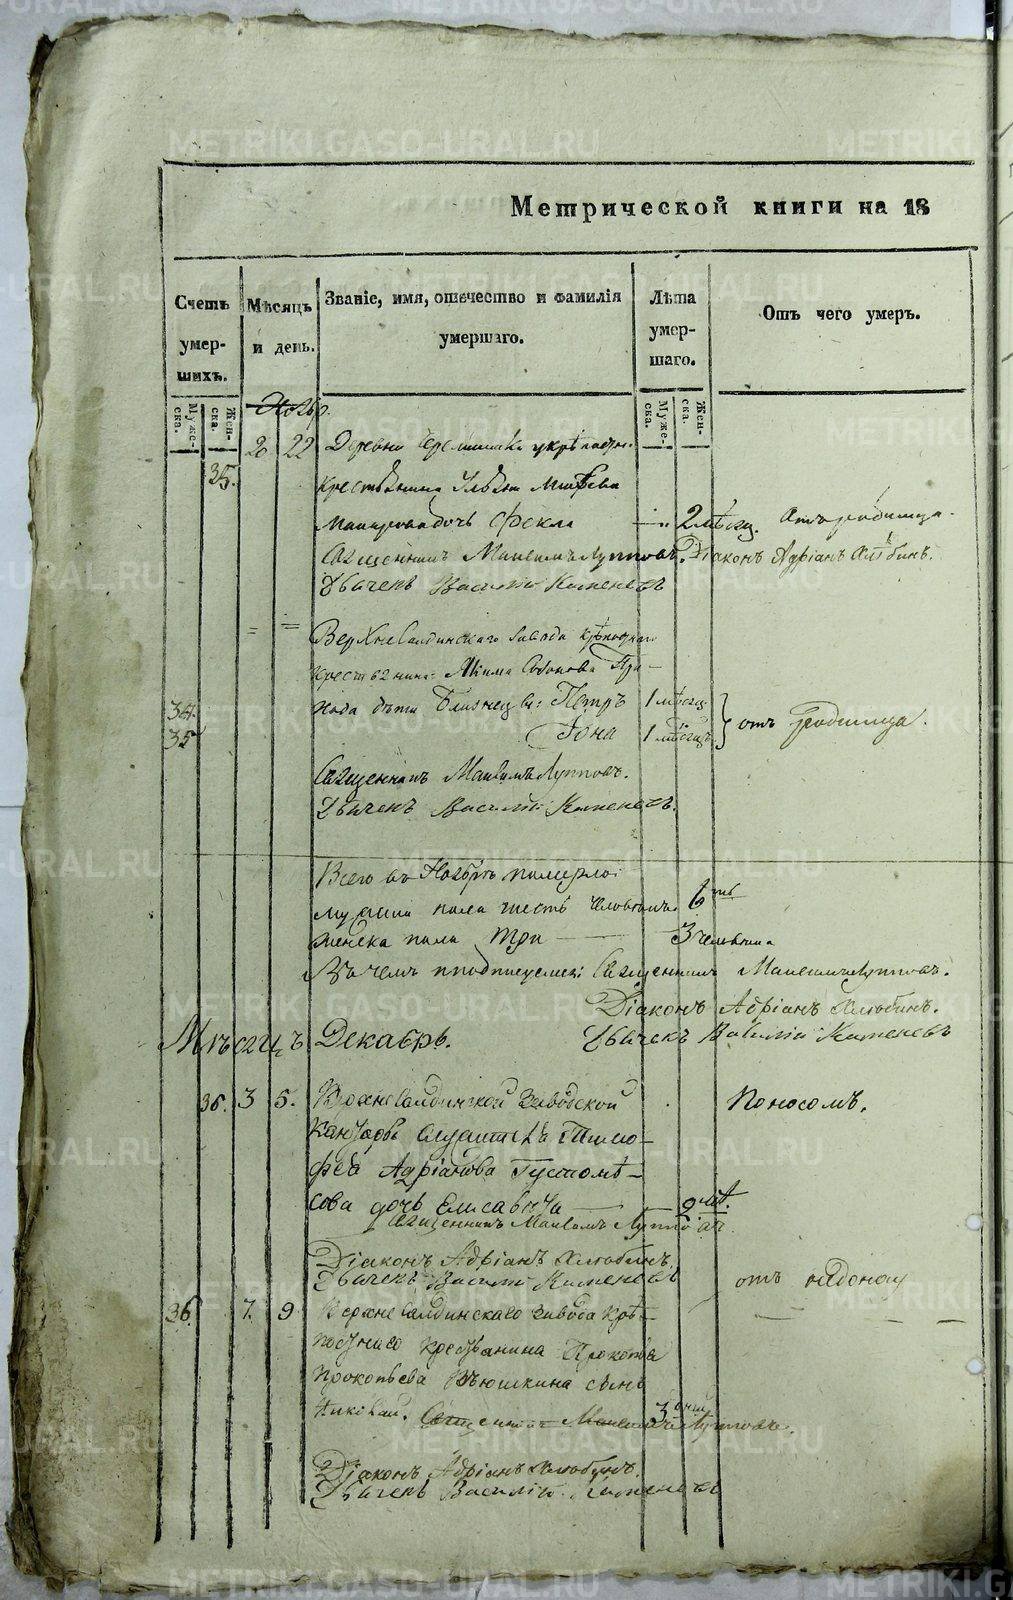 Метрической книги на 18
Счетъ умер-шихъ.
Мѣсяцъ и день.
Званіе, имя, отечество и фамилія умершаго.
Лѣта умер-шаго.
Отъ чего умеръ.
Муже-ска.
Жен-ска.
Муже-ска.
Жен-ска.
Ноябр.
35. 20 22 Деревни
крестьянина
дочь Фекла 2 мѣсяц. Отъ родимца.
Священникъ Максимъ Лупповъ. Діаконъ Адріанъ Хлюбинъ.
Дьячекъ Василій Каменевъ
Верхнесалдинскаго завода крѣпостнаго
крестьянина Акима
дѣти близнецы: Петръ 1 мѣсяц.
34.
35 Іона 1 мѣсяцъ } отъ родимца.
Священникъ Максимъ Лупповъ.
Дьячекъ Василій Каменевъ.
Всего въ Ноябрѣ померло:
мужеска пола шесть человѣкъ. 6
женска пола три 3 человѣка
Въ чемъ и подписуемся: Священникъ Максимъ Лупповъ.
Діаконъ Адріанъ Хлюбинъ.
Мѣсяцъ Декабрь. Дьячекъ Василій Каменевъ
36. 3 5. Верхнесалдинской Заводской Поносомъ.
Канторы служителя Тимо-
фея Адріанова Густомѣ-
сова дочь Елисавета 2 лѣт.
Священникъ Максимъ Лупповъ.
Діаконъ Адріанъ Хлюбинъ.
Дьячекъ Василій Каменевъ
36. 7. 9 Верхнесалдинскаго завода крѣ- отъ
постнаго крестьянина Прокопья
Прокопьева Вьюшкина сынъ
Николай. 3 дней
Священникъ Максимъ Лупповъ.
Діаконъ Адріанъ Хлюбинъ.
Дьячекъ Василій Каменевъ
METRIKI.GASO-URAL.RU